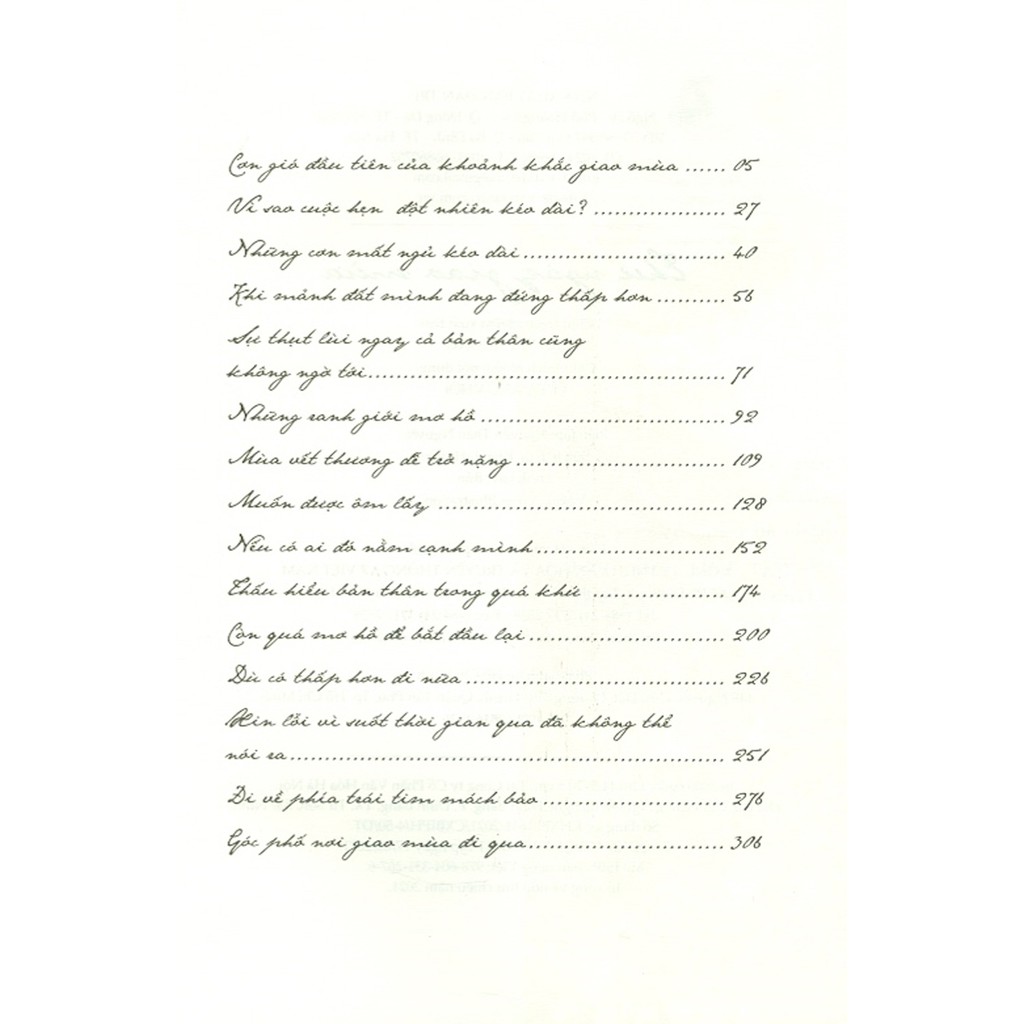 Cơn gió đầu tiên của khoảnh khắc giao mùa ...... 05
Vì sao cuộc hẹn đột nhiên kéo dài? ................... 27
Những cơn mất ngủ kéo dài............................. 40
Khi mảnh đất mình đang đứng thấp hơn .......... 56
Sự thụt lùi ngay cả bản thân cũng
không ngờ tới.................................................... 71
Những ranh giới mơ hồ ................................... 92
Mùa vết thương dễ trở nặng .............................. 109
Muốn được ôm lấy ......................................... 128
Nếu có ai đó nằm cạnh mình........................... 152
Thấu hiểu bản thân trong quá khứ ................... 174
Còn quá mơ hồ để bắt đầu lại ............................ 200
Dù có thấp hơn đi nữa ..................................... 226
Xin lỗi vì suốt thời gian qua đã không thể
nói ra............................................................... 251
Đi về phía trái tim mách bảo........................... 276
Góc phố nơi giao mùa đi qua............................ 306